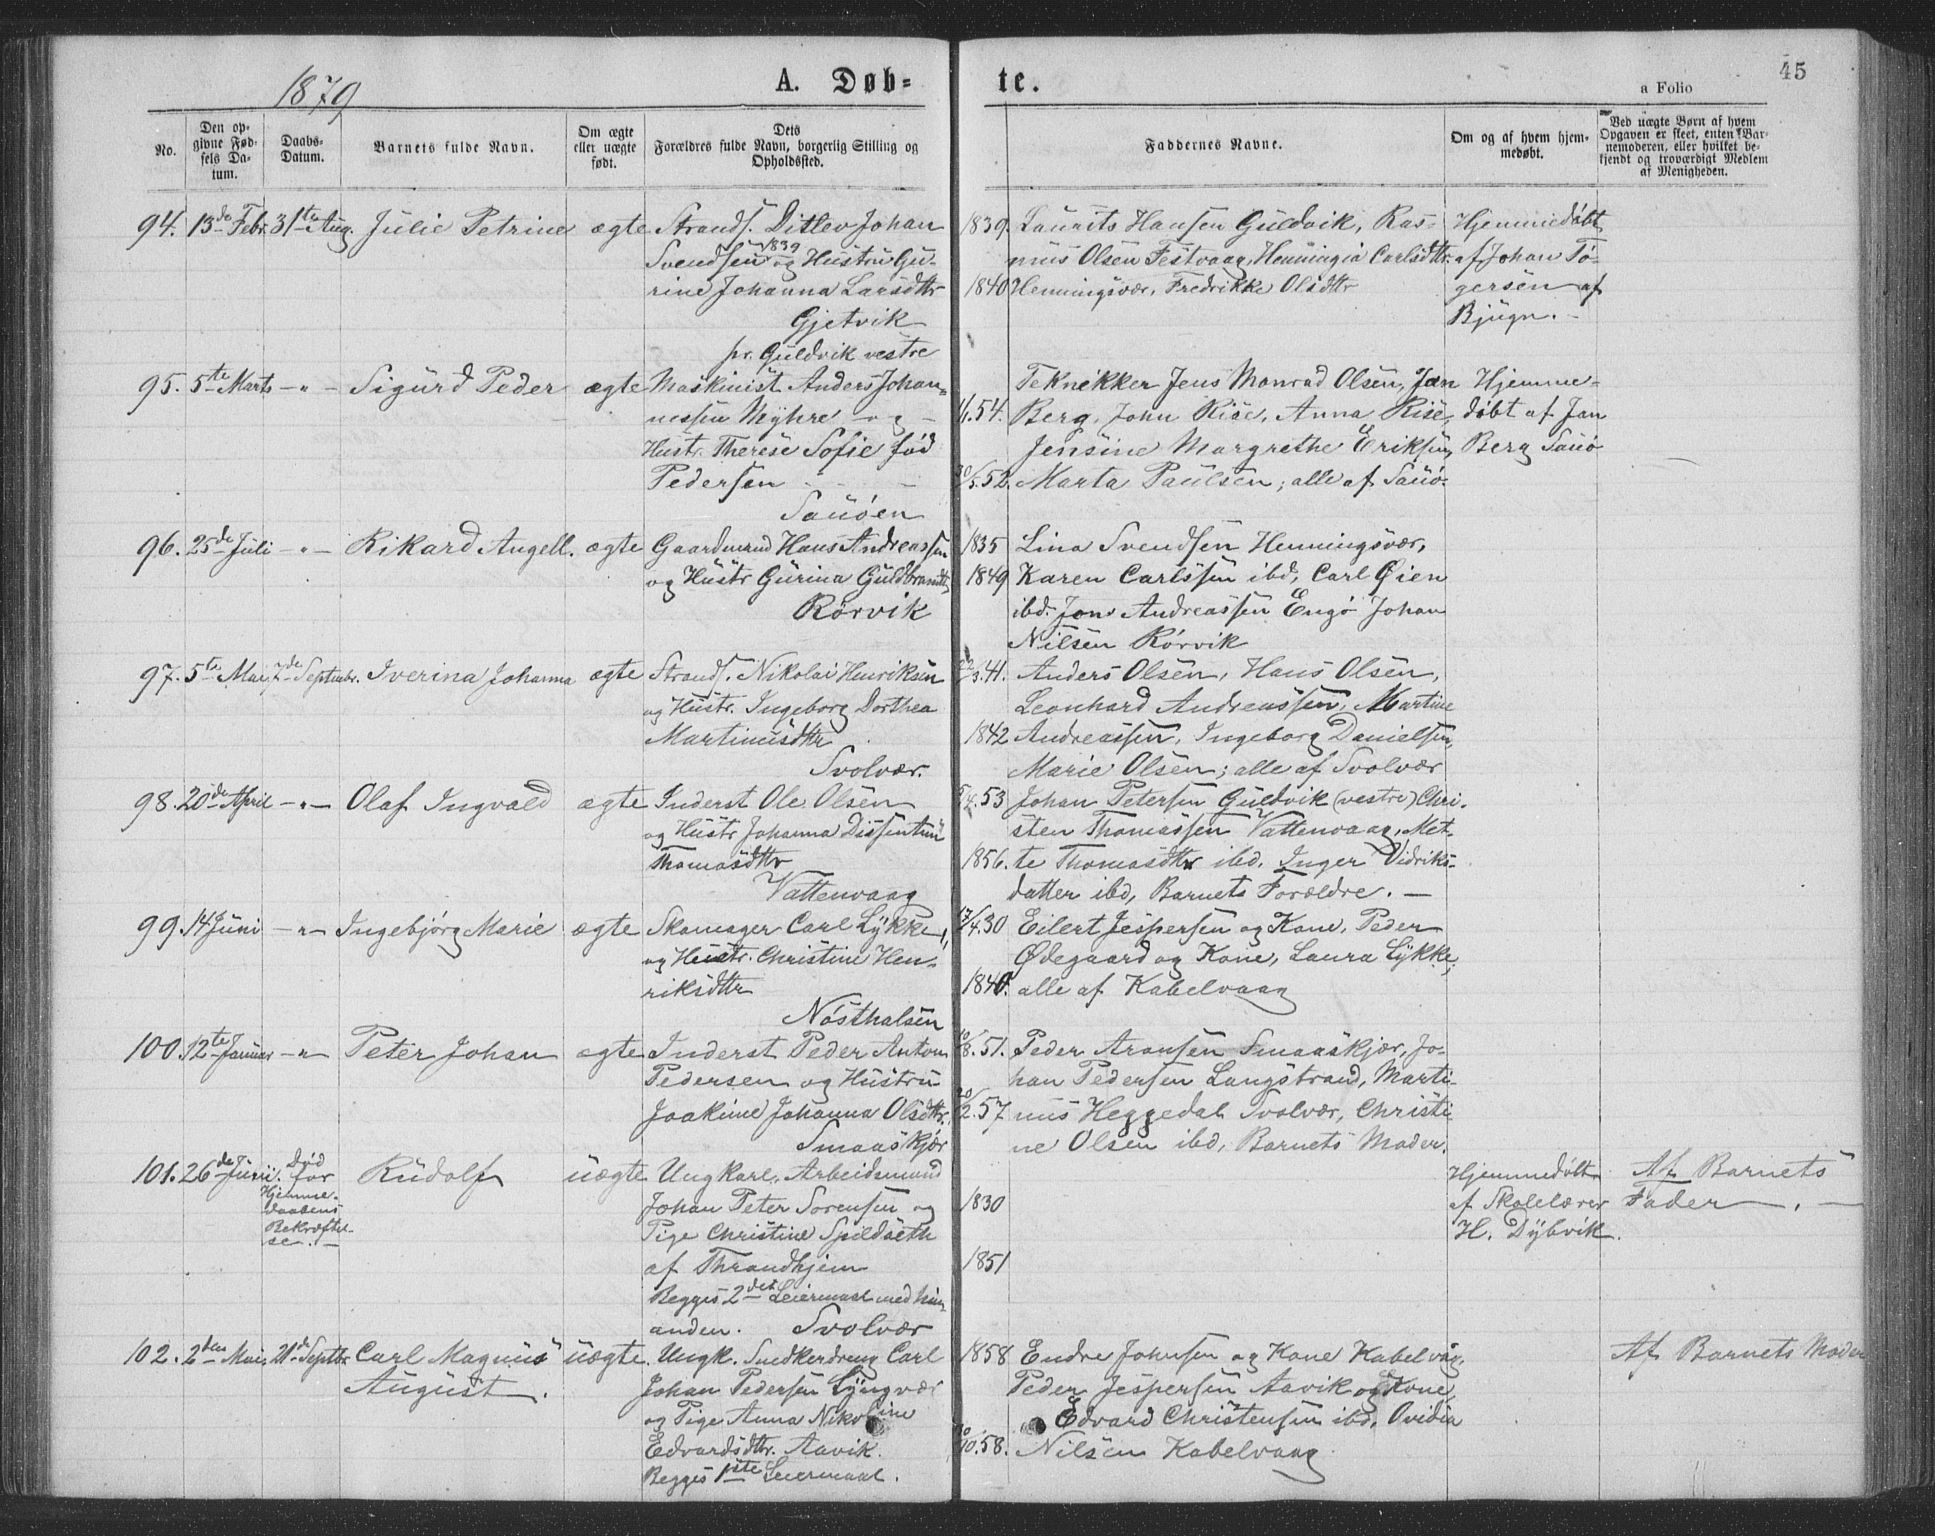 1879
A. Døb-
te.
45
a Folio
No.
Den op-
givne Fød-
sels Da-
tum.
Daabs-
Datum.
Barnets fulde Navn.
Om ægte
eller uægte
født.
Dets
Forældres fulde Navn, borgerlig Stilling og
Opholdssted.
Faddernes Navne.
Om og af hvem hjem-
medøbt.
Ved uægte Børn af hvem
Opgaven er skeet, enten Bar-
nemoderen, eller hvilket be-
kjendt og troværdigt Medlem
af Menigheden.
94. 13de Febr. 31te Aug. Julie Petrine ægte Strands. Ditlev Johan
Svendsen 1839 og Hustru Gu-
rine Johanna Larsdttr
Gjetvik
pr. Guldvik vestre
1839 Laurits Hansen Guldvik, Ras-
mus Olsen Festvaag, Henningia Carlsdttr.
1840 Henningsvær, Fredrikke Olsdttr
Hjemmedøbt
af Johan To-
gersen af
Bjugn. -
95. 5te Marts - " - Sigurd Peder ægte Maskinist Anders Johan-
nessen Myhre - og -
Hustr. Therese Sofie fød
Pedersen - - -
Sauøen
Teknikker Jens Monrad Olsen, Jan
11.54. Berg, John Rise, Anna Rise,
Jensine Margrethe Eriksen,
30/5.52. Marta Paulsen; alle af Sauø.
Hjemme-
døbt af Jan
Berg Sauø
96. 25de Juli - " - Rikard Angell. ægte Gaardmand Hans Andreassen
og Hustr Gurina Guldbrandt.
Rørvik
1835 Lina Svendsen Henningsvær,
1849 Karen Carlssen ibd, Carl Øien
ibd. Jon Andreassen Engø Johan
Nilsen Rørvik
97. 5te Mai, 7de Septembr. Iverina Johanna ægte Strands. Nikolai Henriksen
og Hustr. Ingeborg Dorthea
Martinusdttr
Svolvær.
22/3.41. Anders Olsen, Hans Olsen,
Leonhard Andreassen, Martine
1842 Andreassen, Ingeborg Danielsen,
Marie Olsen; alle af Svolvær
98. 20de April - " - Olaf Ingvald ægte Inderst Ole Olsen
og Hustr Johanna Dissentine
Thomasdttr
Vattenvaag
4.53 Johan Petersen Guldvik (vestre) Chri-
sten Thomassen Vattenvaag, Met-
1856. te Thomasdttr ibd, Inger Didriks-
datter ibd, Barnets Forældre. -
99. 14 Juni - " - Ingebjørg Marie ægte Skomager Carl Lykke
og Hustr. Christine Hen-
riksdttr
Nøsthalsen
17/4.30 Eilert Jespersen og Kone, Peder
Ødegaard og Kone, Laura Lykke,
1840. alle af Kabelvaag
100. 12te Januar - " - Peter Johan ægte Inderst Peder Anton
Pedersen og Hustru
Joakime Johanna Olsdttr.
Smaaskjær
10/8.51. Peder Aronsen Smaaskjær, Jo-
han Pedersen Langstrand, Marti-
20/2.57 nus Heggedal Svolvær, Christi
ne Olsen ibd, Barnets Moder.
101. 26de Juni. Død
for
Hjemme-
daabens
Bekræftel-
se. -
Rudolf uægte Ungkarl, Arbeidsmand
Johan Peter Sorensen og
Pige Christine Spildseth
af Throndhjem
Begges 2det Leiermaal med hin-
anden. Svolvær
1830
1851
Hjemmedøbt
af Skolelærer
H. Dybvik.
Af Barnets
Fader. -
102. 2den Mai, 21de Septbr. Carl Magnus
August.
uægte. Ungk. Snedkerdreng Carl
Johan Pedersen Lyngvær
og Pige Anna Nikoline
Edvardsdttr. Aavik.
Begges 1ste Leiermaal.
1858 Endre Johnsen og Kone Kabelvåg.
Peder Jespersen Aavik og Kone,
Edvard Christensen ibd, Ovidia
10.58. Nilsen Kabelvaag
Af Barnets Moder